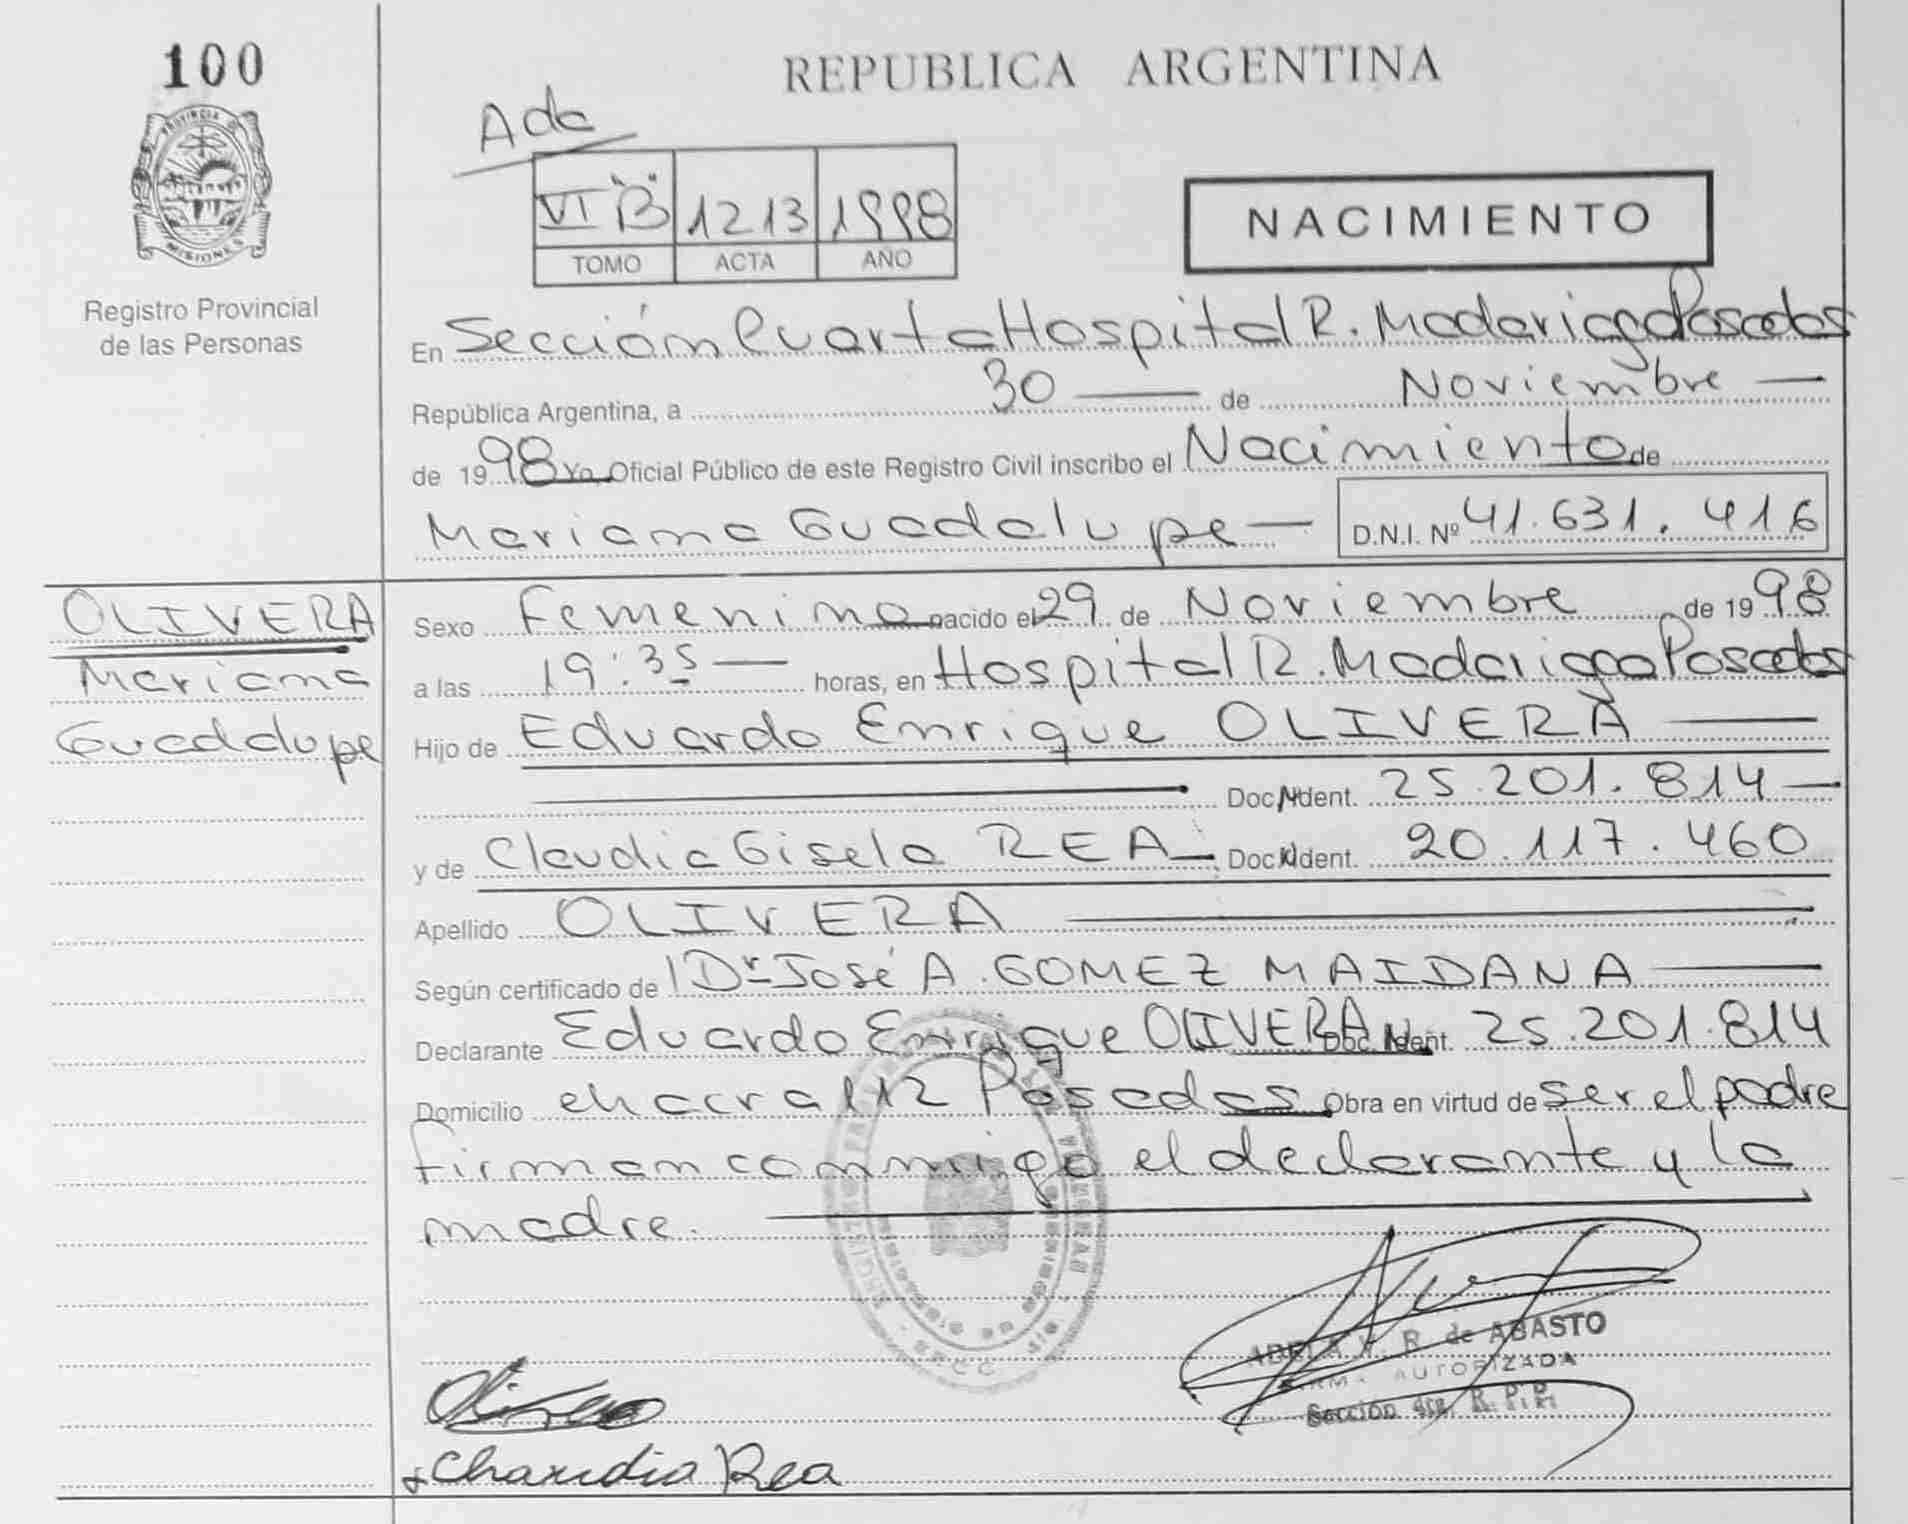 100
REPUBLICA ARGENTINA
PROVINCIA D
MISIONES
Registro Provincial
de las Personas
VI "B" 1213 1998
TOMO ACTA AÑO
NACIMIENTO
En Sección Cuarta Hospital R. Madariaga Posadas
República Argentina, a 30 de Noviembre
de 1998 Yo, Oficial Público de este Registro Civil inscribo el Nacimiento de
Mariana Guadalupe D.N.I. Nº 41.631.416
OLIVERA
Mariana
Guadalupe
Sexo Femenino nacido el 29 de Noviembre de 1998
a las 19:35 horas, en Hospital R. Madariaga Posadas
Hijo de Eduardo Enrique OLIVERA
Doc. Ident. 25.201.814
y de Claudia Gisela REA Doc. Ident. 20.117.460
Apellido OLIVERA
Según certificado de Dr José A. GOMEZ MAIDANA
Declarante Eduardo Enrique OLIVERA Doc. Ident. 25.201.814
Domicilio chacra 112 Posadas Obra en virtud de ser el padre
firman conmigo el declarante y la
madre.
ADELA V. R. de ABASTO
FIRMA AUTORIZADA
Sección 4ta. R. P. P.
Claudia Rea